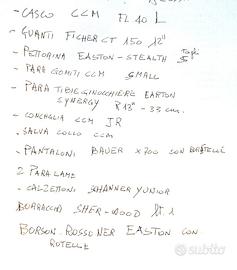 - CASCO CCM FL 40 L
- GUANTI FICHER CT 150 12"
- PETTORINA EASTON - STEALTH S
- PARA GOMITI CCM SMALL
- PARA TIBIE GINOCCHIERE EASTON
SYNERGY R 13" - 33 cm.
- CONCHIGLIA CCM JR
- SALVA COLLO CCM
- PANTALONI BAUER X700 CON BRETELLE
2 PARALAME
- CALZETTONI JOHANNER YUNIOR
- BORRACCIA SHER-WOOD lt. 1
- BORSON. ROSSO NER EASTON CON
ROTELLE
subito